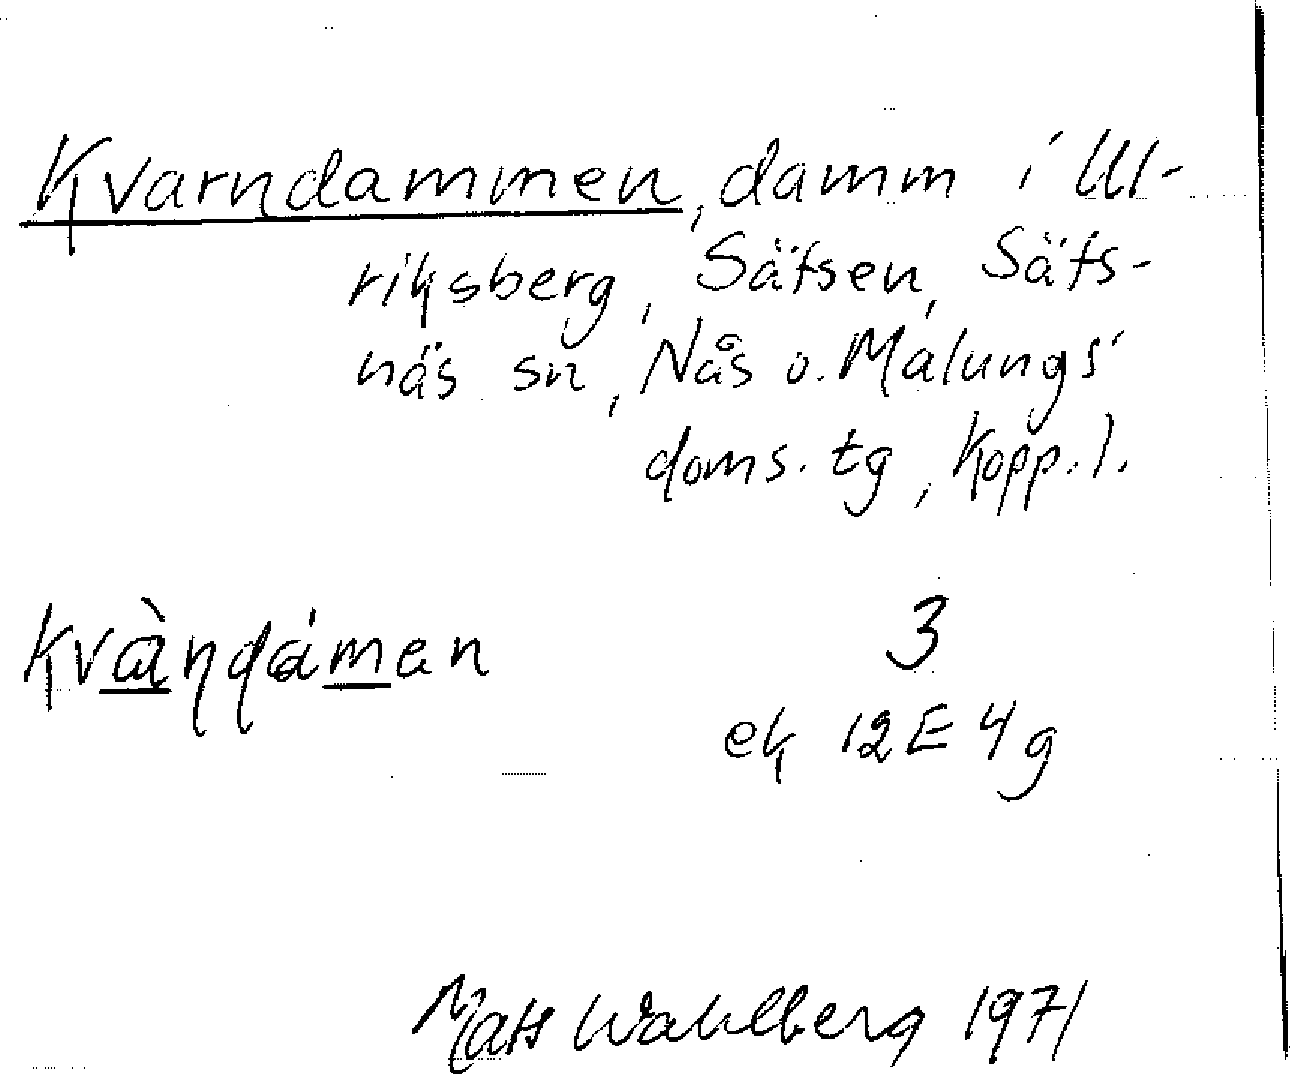 Kvarndammen, damm i Ul-
riksberg, Säfsen, Säfs-
näs sn, Nås o. Malungs
doms. tg, Kopp. l.
kvàṇḍámen 3
ek 12E 4g
Mats Wahlberg 1971